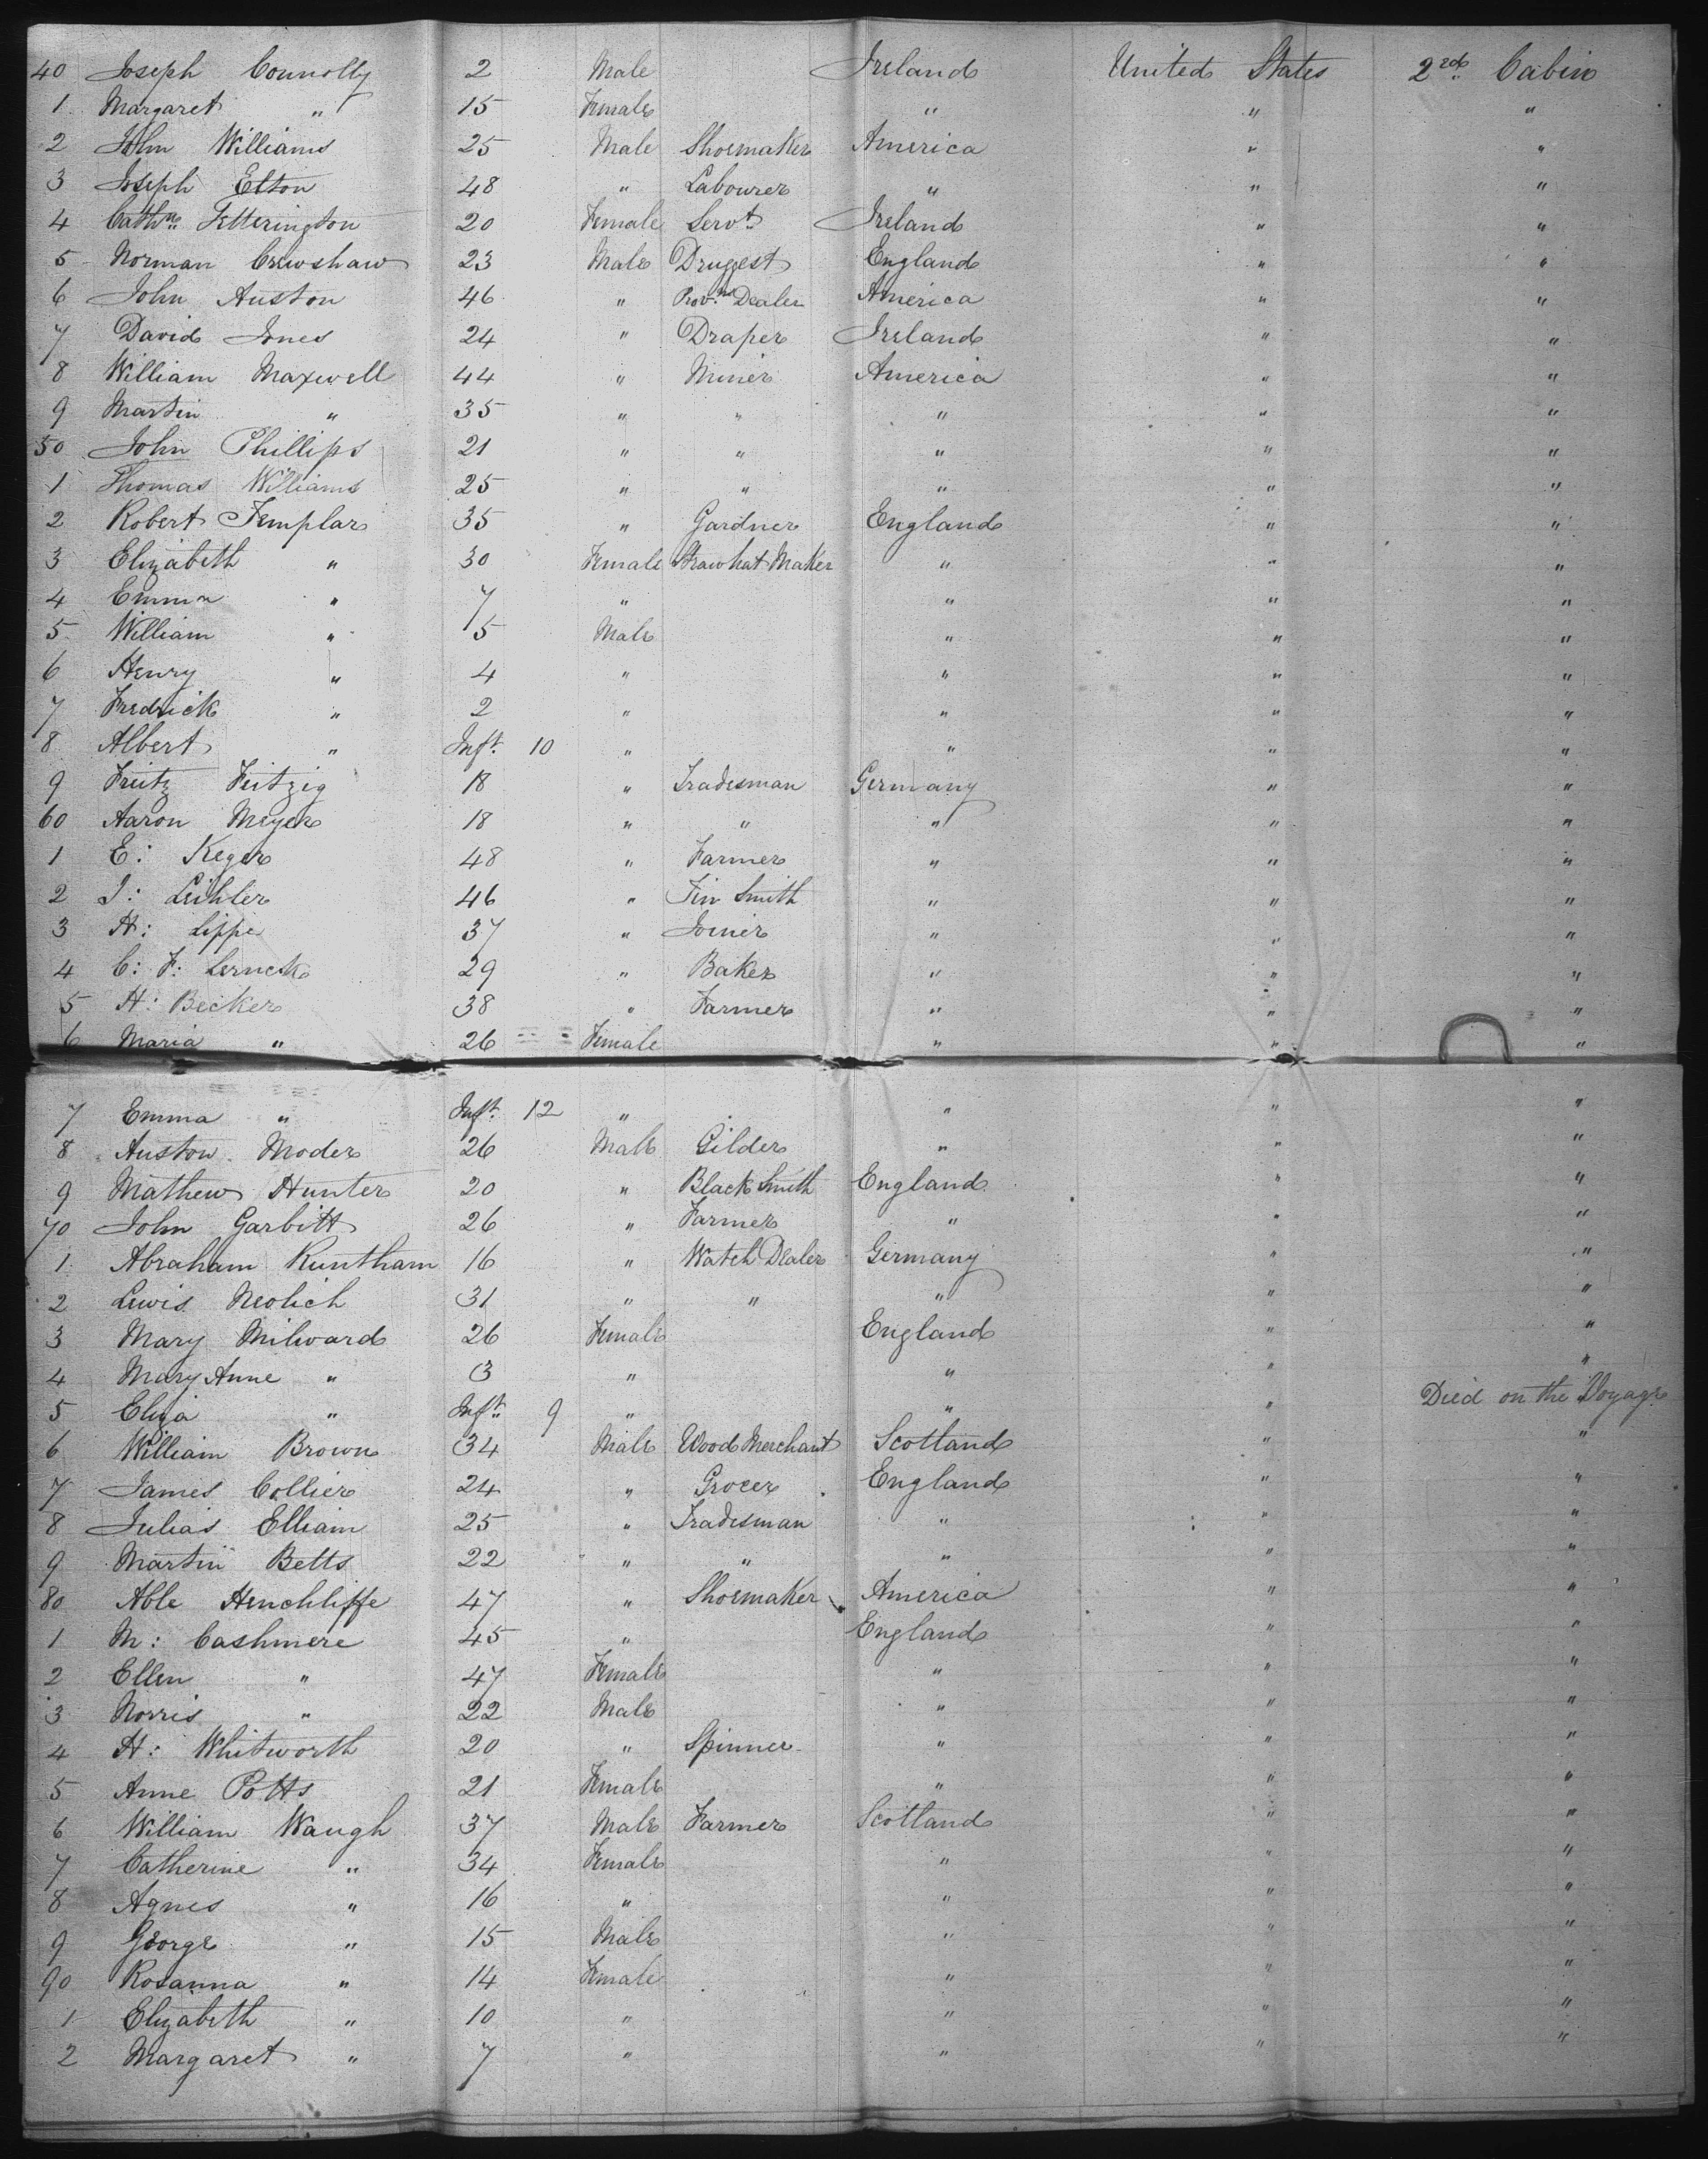 40 Joseph Connolly 2 Male Ireland United States 2nd Cabin
1 Margaret " 15 Female " " "
2 John Williams 25 Male Shoemaker America " "
3 Joseph Elton 48 " Labourer " " "
4 Cathne Fetterington 20 Female Servt Ireland " "
5 Norman Crewshaw 23 Male Druggest England " "
6 John Auston 46 " Provn Dealer America " "
7 David Jones 24 " Draper Ireland " "
8 William Maxwell 44 " Miner America " "
9 Martin " 35 " " " " "
50 John Phillips 21 " " " " "
1 Thomas Williams 25 " " " " "
2 Robert Templar 35 " Gardner England " "
3 Elizabeth " 30 Female Straw hat Maker " " "
4 Emma " 7 " " " "
5 William " 5 Male " " "
6 Henry " 4 " " " "
7 Fredrick " 2 " " " "
8 Albert " Inft. 10 " " " "
9 Fritz Feitzig 18 " Tradesman Germany " "
60 Aaron Meyer 18 " " " " "
1 E: Keger 48 " Farmer " " "
2 J: Leihler 46 " Tin Smith " " "
3 H: Lippe 37 " Joiner " " "
4 C: F: Lernck 29 " Baker " " "
5 H: Becker 38 " Farmer " " "
6 Maria " 26 Female " " "
7 Emma " Inft. 12 " " " "
8 Auston Moder 26 Male Gilder " " "
9 Mathew Hunter 20 " Black Smith England " "
70 John Garbitt 26 " Farmer " " "
1 Abraham Kuntham 16 " Watch Dealer Germany " "
2 Lewis Neolich 31 " " " " "
3 Mary Milward 26 Female England " "
4 Mary Anne " 3 " " " "
5 Eliza " Inft. 9 " " " Died on the Voyage
6 William Brown 34 Male Wood Merchant Scotland " "
7 James Collier 24 " Grocer England " "
8 Julias Elliam 25 " Tradesman " " "
9 Martin Betts 22 " " " " "
80 Able Henchliffe 47 " Shoemaker America " "
1 M: Cashmere 45 " England " "
2 Ellen " 47 Female " " "
3 Norris " 22 Male " " "
4 H: Whitworth 20 " Spinner " " "
5 Anne Potts 21 Female " " "
6 William Waugh 37 Male Farmer Scotland " "
7 Catherine " 34 Female " " "
8 Agnes " 16 " " " "
9 George " 15 Male " " "
90 Rosanna " 14 Female " " "
1 Elizabeth " 10 " " " "
2 Margaret " 7 " " " "